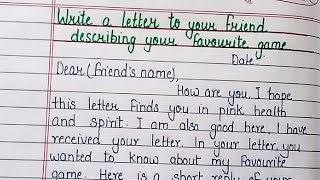 Write a letter to your friend
describing your favourite game
Date:
Dear (Friend's name),
How are you. I hope
this letter finds you in pink health
and spirit. I am also good here, I have
received your letter. In your letter, you
wanted to know about my favourite
game. Here is a short reply of your